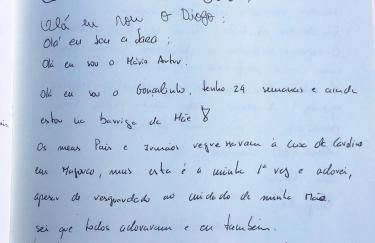 Olá eu sou o Diogo;
Olá eu sou a Sara;
Olá eu sou o Mário Artur.
Olá eu sou o Goncalinho, tenho 24 semanas e ainda
estou na barriga da Mãe
Os meus Pais e Irmãos regressaram à Casa de Cardina
em Março, mas esta é a minha 1ª vez e adorei,
apesar de resguardado ao cuidado de minha Mãe.
sei que todos adoraram e eu também.